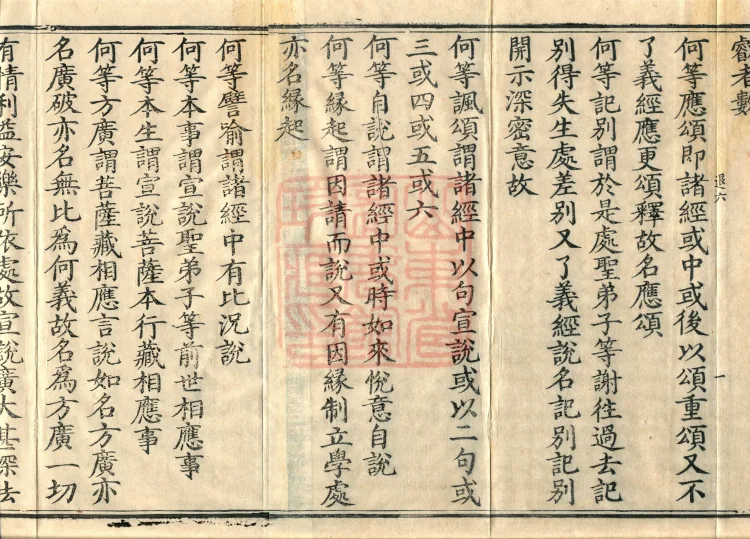 叡者數
何等應頌即諸經或中或後以頌重頌又不
了義經應更頌釋故名應頌
何等記別謂於是處聖弟子等謝往過去記
別得失生處差別又了義經說名記別記別
開示深密意故
何等諷頌謂諸經中以句宣說或以二句或
三或四或五或六
何等自說謂諸經中或時如來悅意自說
何等緣起謂因請而說又有因緣制立學處
亦名緣起
何等譬喻謂諸經中有比況說
何等本事謂宣說聖弟子等前世相應事
何等本生謂宣說菩薩本行藏相應事
何等方廣謂菩薩藏相應言說如名方廣亦
名廣破亦名無比爲何義故名爲方廣一切
有情利益安樂所依處故宣說廣大甚深法